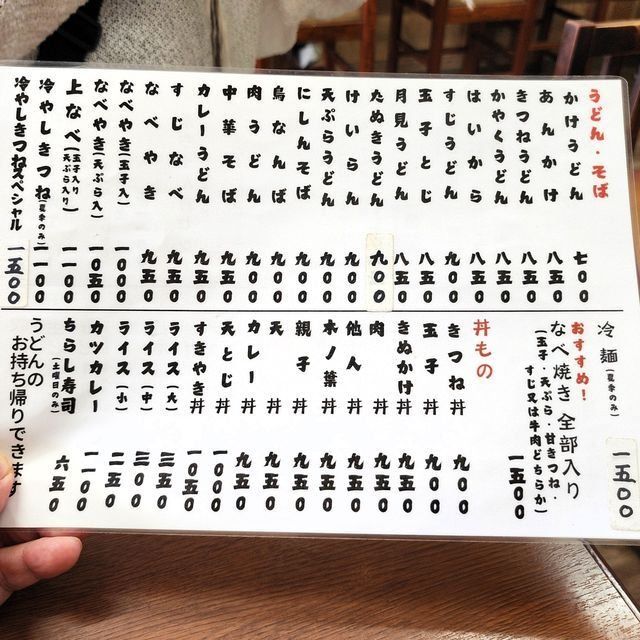 うどん・そば
かけうどん 七〇〇
あんかけ 八五〇
きつねうどん 八五〇
かやくうどん 八五〇
はいから 八五〇
すじうどん 九〇〇
玉子とじ 八五〇
月見うどん 八五〇
たぬきうどん 九〇〇
けいらん 九〇〇
天ぷらうどん 九〇〇
にしんそば 九〇〇
鳥なんば 九〇〇
肉うどん 九〇〇
中華そば 九五〇
カレーうどん 九五〇
すじなべ 九五〇
なべやき 九五〇
なべやき(玉子入) 一〇〇〇
なべやき(天ぷら入) 一〇五〇
上なべ(玉子入り 天ぷら入り) 一一〇〇
冷やしきつね(夏季のみ) 一一〇〇
冷やしきつねスペシャル 一五〇〇
冷麺(夏季のみ) 一五〇〇
おすすめ!
なべ焼き 全部入り
(玉子・天ぷら・甘きつね・
すじ又は牛肉どちらか) 一五〇〇
丼もの
きつね丼 九〇〇
玉子丼 九〇〇
きぬかけ丼 九五〇
肉丼 九五〇
他人丼 九五〇
木ノ葉丼 九五〇
親子丼 九五〇
天丼 九五〇
カレー丼 九五〇
天とじ丼 一〇〇〇
すきやき丼 一〇五〇
ライス(大) 三五〇
ライス(中) 三〇〇
ライス(小) 二五〇
カツカレー 一一〇〇
ちらし寿司(土曜日のみ) 六五〇
うどんの
お持ち帰りできます